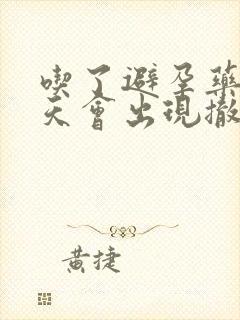 喫了避孕藥
天會出現撤
黃捷